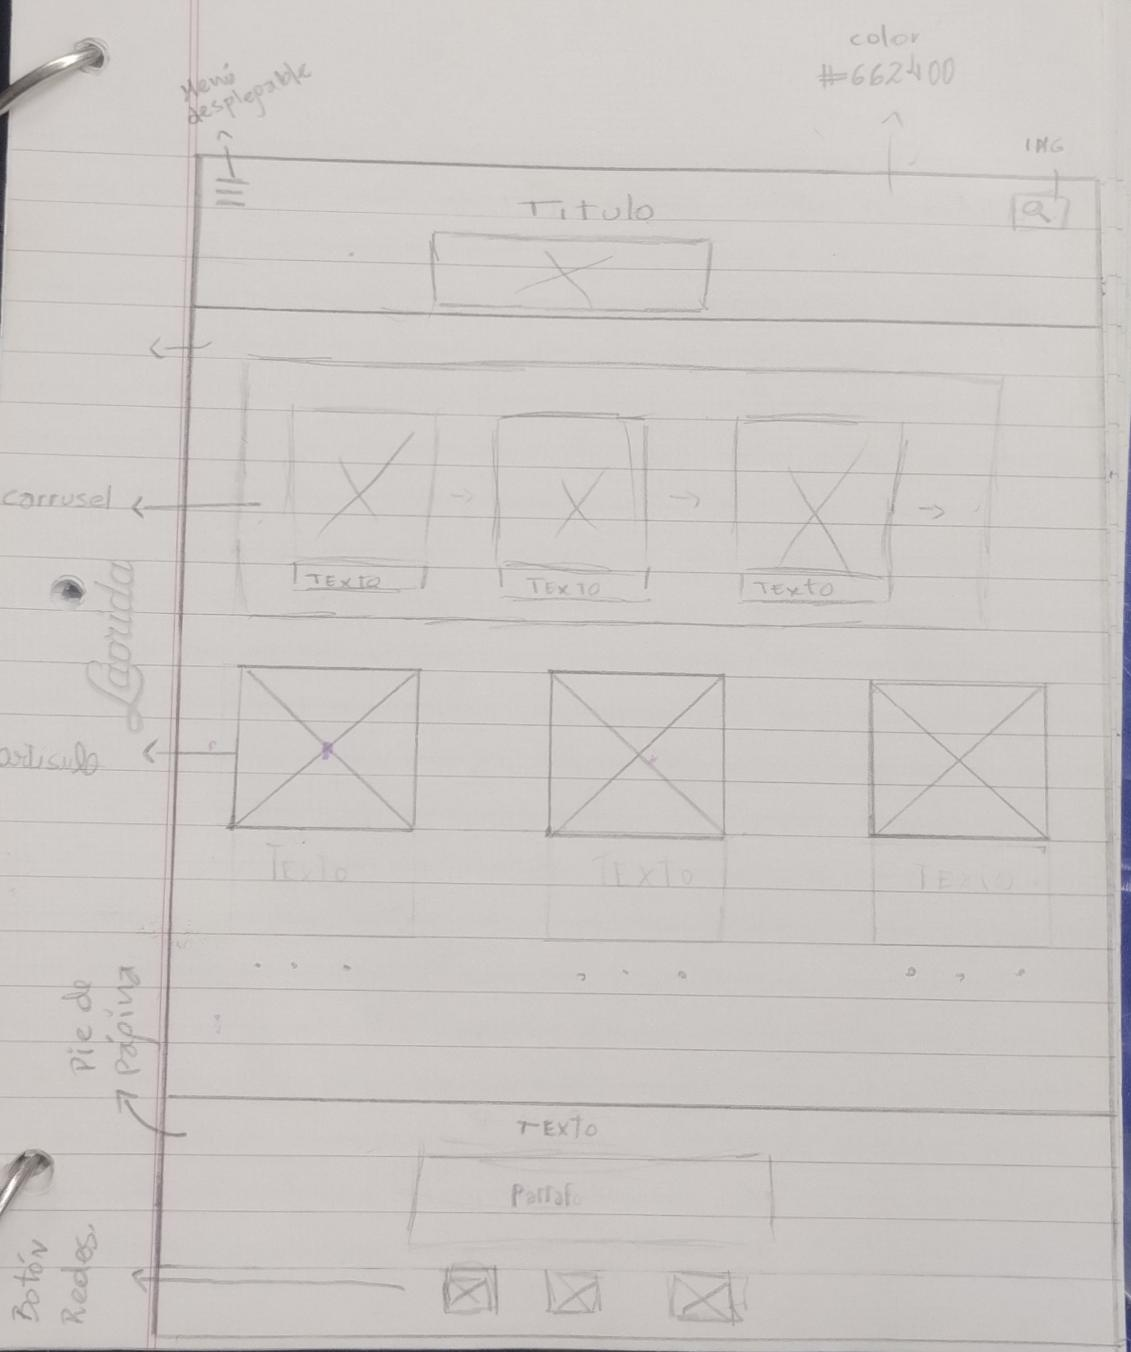 color
#662400
Menú
desplegable
IMG
Titulo
carrusel
TEXTO
TEXTO
TExtO
Laprida
articulo
TEXTO
TEXTO
TEXTO
Pie de
Página
TEXTO
Parrafo
Botón
Redes.